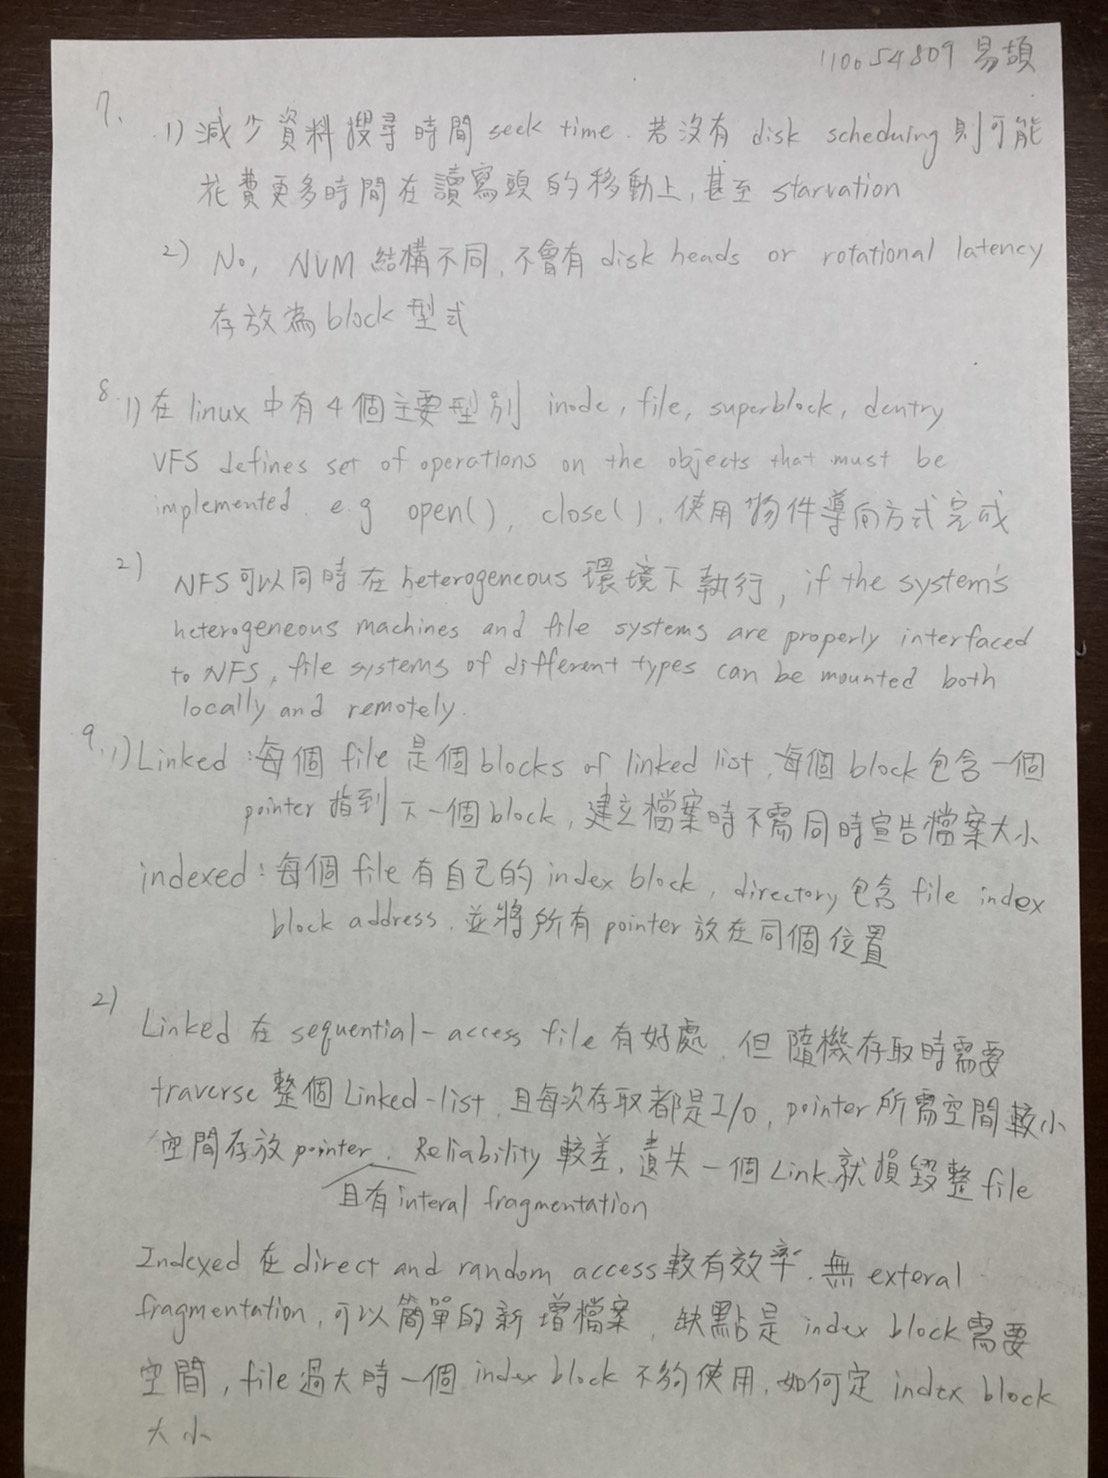 110654809 易頡
7.
1) 減少資料搜尋時間 seek time. 若沒有 disk scheduling 則可能
花費更多時間在讀寫頭的移動上, 甚至 starvation
2) No, NVM 結構不同, 不會有 disk heads or rotational latency
存放為 block 型式
8. 1) 在 linux 中有 4 個主要型別 inode, file, superblock, dentry
VFS defines set of operations on the objects that must be
implemented. e.g open(), close(), 使用物件導向方式完成
2) NFS 可以同時在 heterogeneous 環境下執行, if the system's
heterogeneous machines and file systems are properly interfaced
to NFS, file systems of different types can be mounted both
locally and remotely.
9. 1) Linked: 每個 file 是個 blocks of linked list, 每個 block 包含一個
pointer 指到下一個 block, 建立檔案時不需同時宣告檔案大小
indexed: 每個 file 有自己的 index block, directory 包含 file index
block address, 並將所有 pointer 放在同個位置
2)
Linked 在 sequential-access file 有好處, 但隨機存取時需要
traverse 整個 Linked-list, 且每次存取都是 I/O, pointer 所需空間較小
空間存放 pointer. Reliability 較差, 遺失一個 Link 就損毀整 file
且有 interal fragmentation
Indexed 在 direct and random access 較有效率. 無 exteral
fragmentation, 可以簡單的新增檔案, 缺點是 index block 需要
空間, file 過大時一個 index block 不夠使用, 如何定 index block
大小